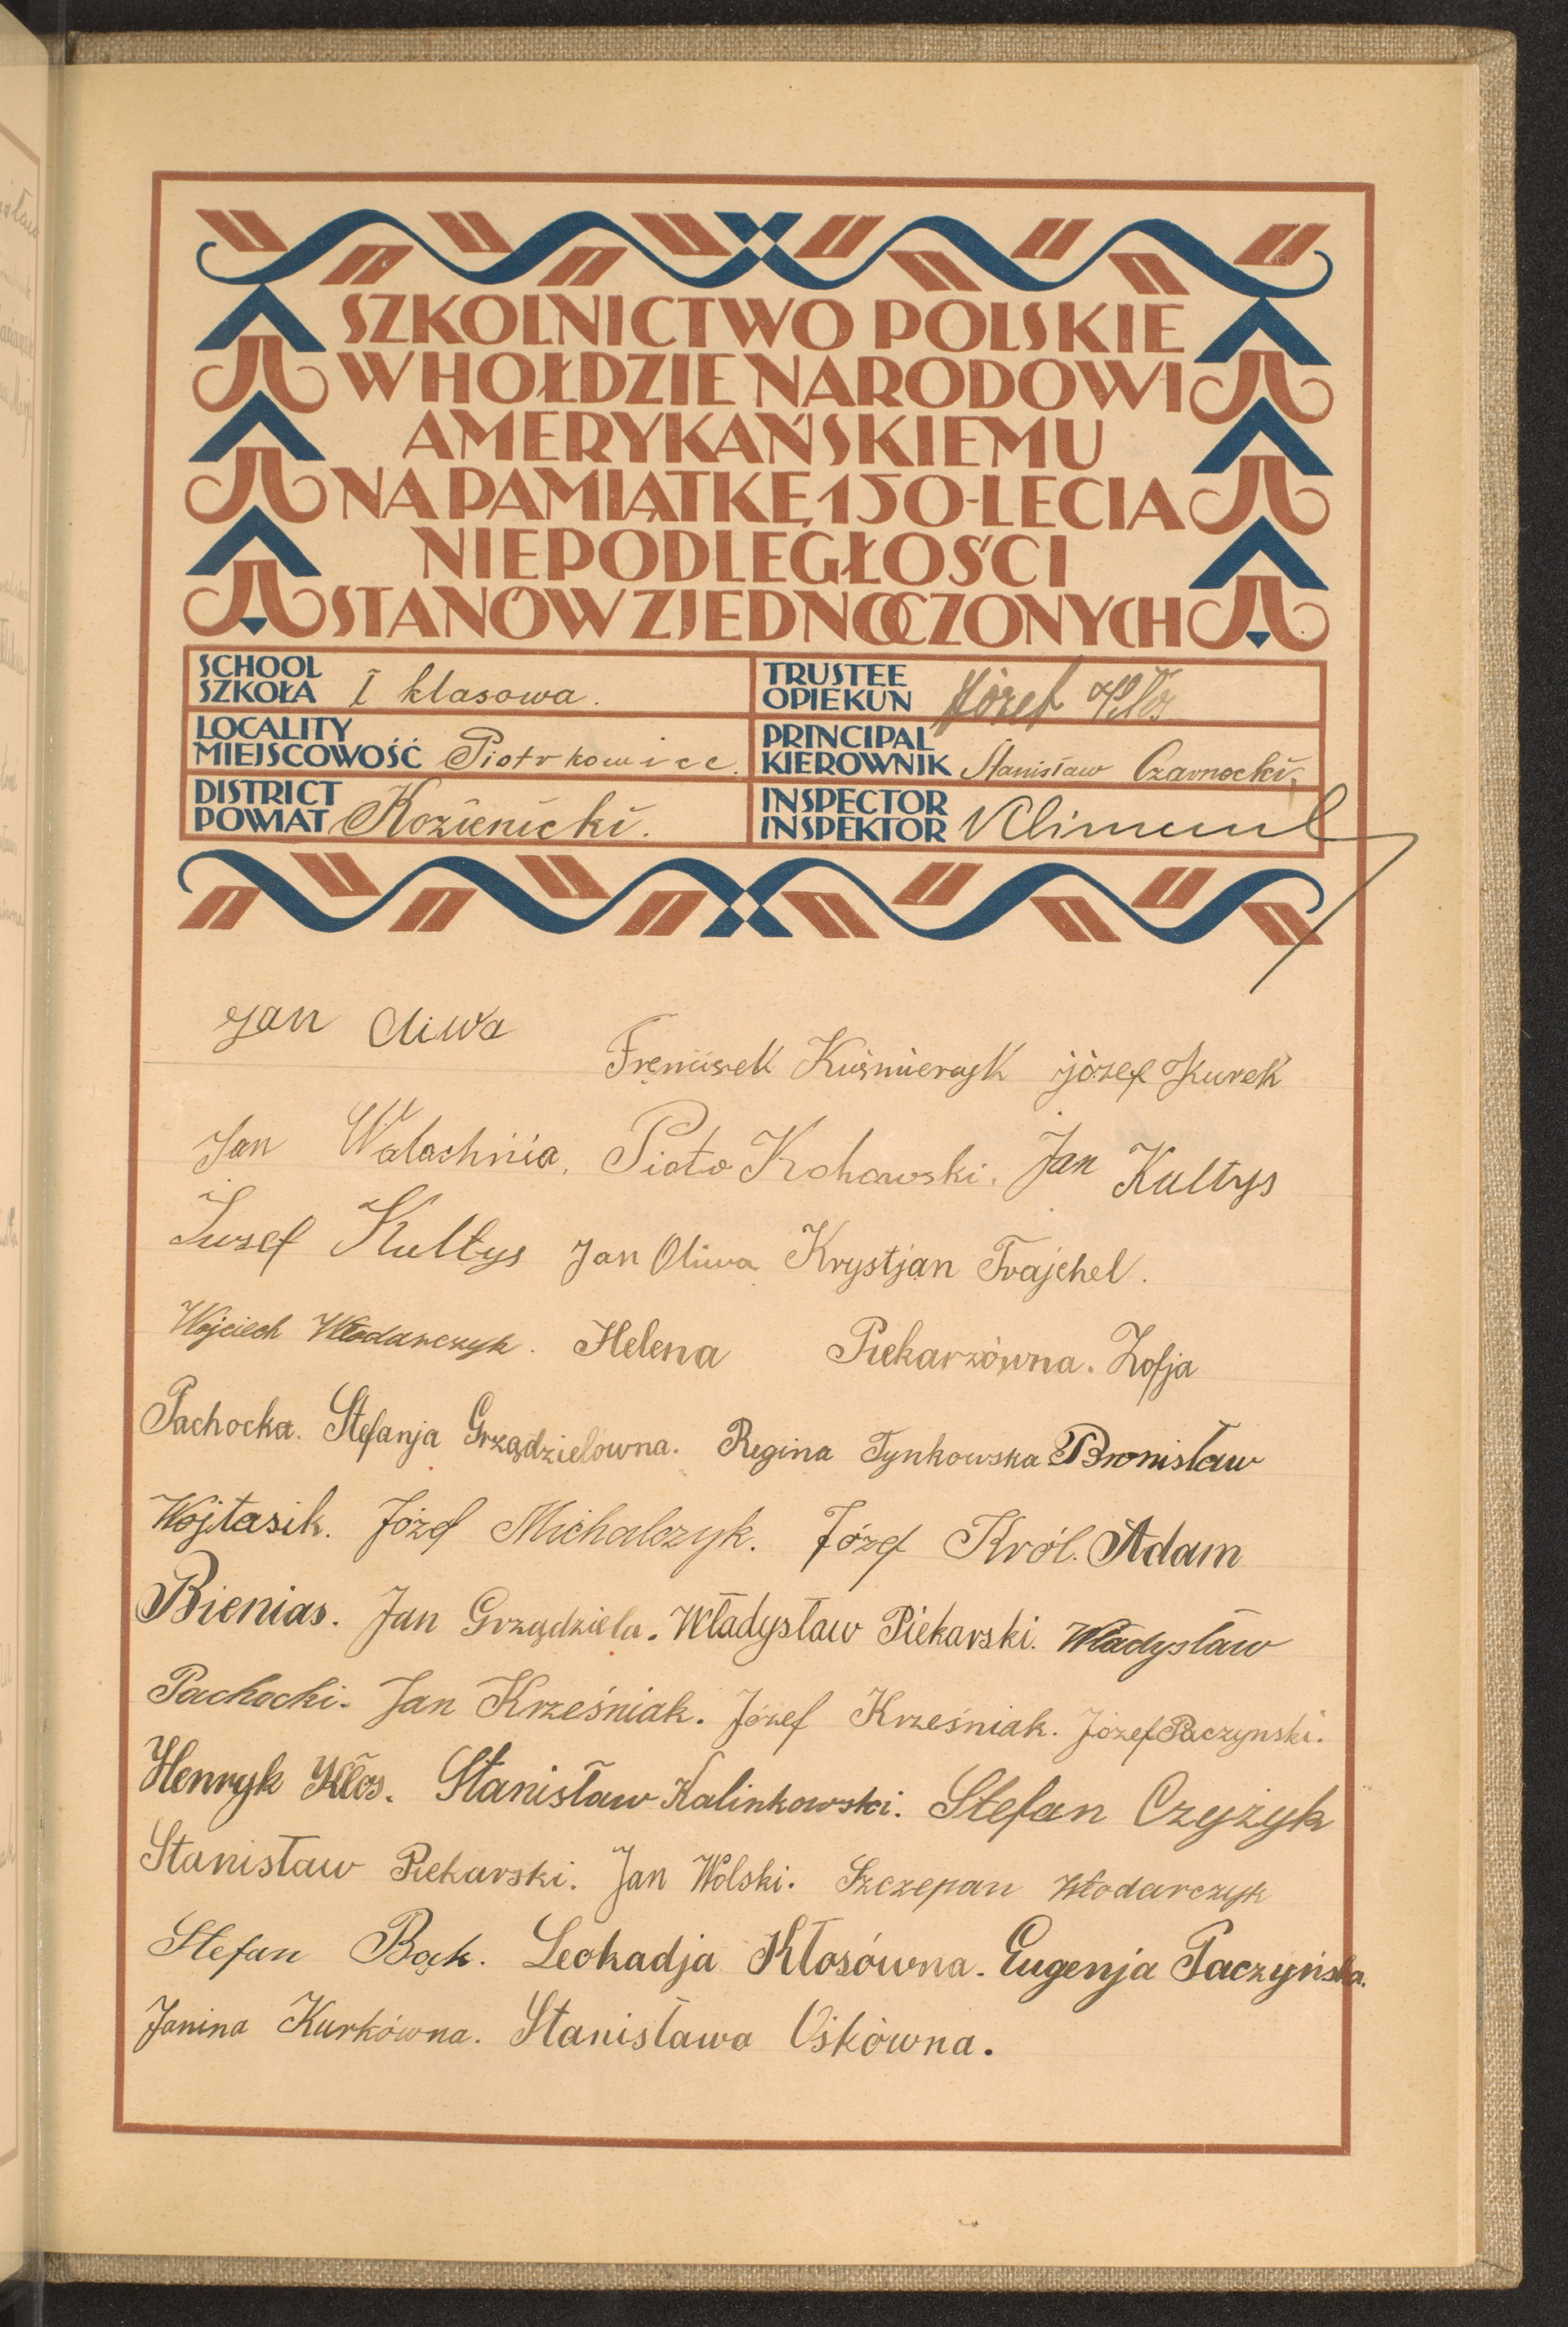 SZKOLNICTWO POLSKIE
W HOŁDZIE NARODOWI
AMERYKAŃSKIEMU
NA PAMIĄTKĘ 150-LECIA
NIEPODLEGŁOŚCI
STANÓW ZJEDNOCZONYCH
SCHOOL
SZKOŁA I klasowa.
TRUSTEE
OPIEKUN Józef
LOCALITY
MIEJSCOWOŚĆ Piotrkowice.
PRINCIPAL
KIEROWNIK Stanisław Czarnocki,
DISTRICT
POWIAT Kozienicki.
INSPECTOR
INSPEKTOR
Jan Oliwa
Kuśmierczyk józef Kurek
Jan Walachnia. Piotr Kohowski. Jan Kultys
Juzef Kultys Jan Oliwa Krystjan Trajchel.
Wojciech Włodarczyk. Helena Piekarzówna. Zofja
Pachocka. Stefanja Grządzielówna. Regina Tynkowska Bronisław
Wojtasik. Józef Michalczyk. Józef Król. Adam
Bienias. Jan Grządziela. Władysław Piekarski. Władysław
Pachocki. Jan Krześniak. Józef Krześniak. Józef Paczynski.
Henryk Kłos. Stanisław Kalinkowski. Stefan Czyżyk
Stanisław Piekarski. Jan Wolski. Szczepan Włodarczyk
Stefan Bąk. Leokadja Kłosówna. Eugenja Paczyńska.
Janina Kurkówna. Stanisława Ośkówna.